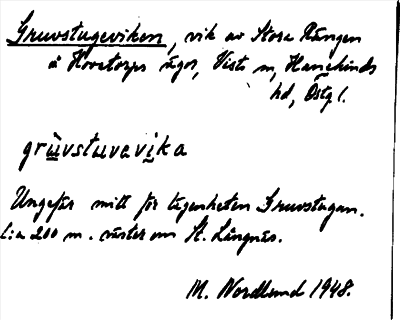 Gruvstugeviken, vik av Stora Rängen
å Hovetorps ägor, Vists sn, Hanekinds
hd, Östgl.
grùvstuvavika
Ungefär mitt för lägenheten Gruvstugan.
C:a 200 m. väster om St. Långnäs.
M. Nordlund 1948.